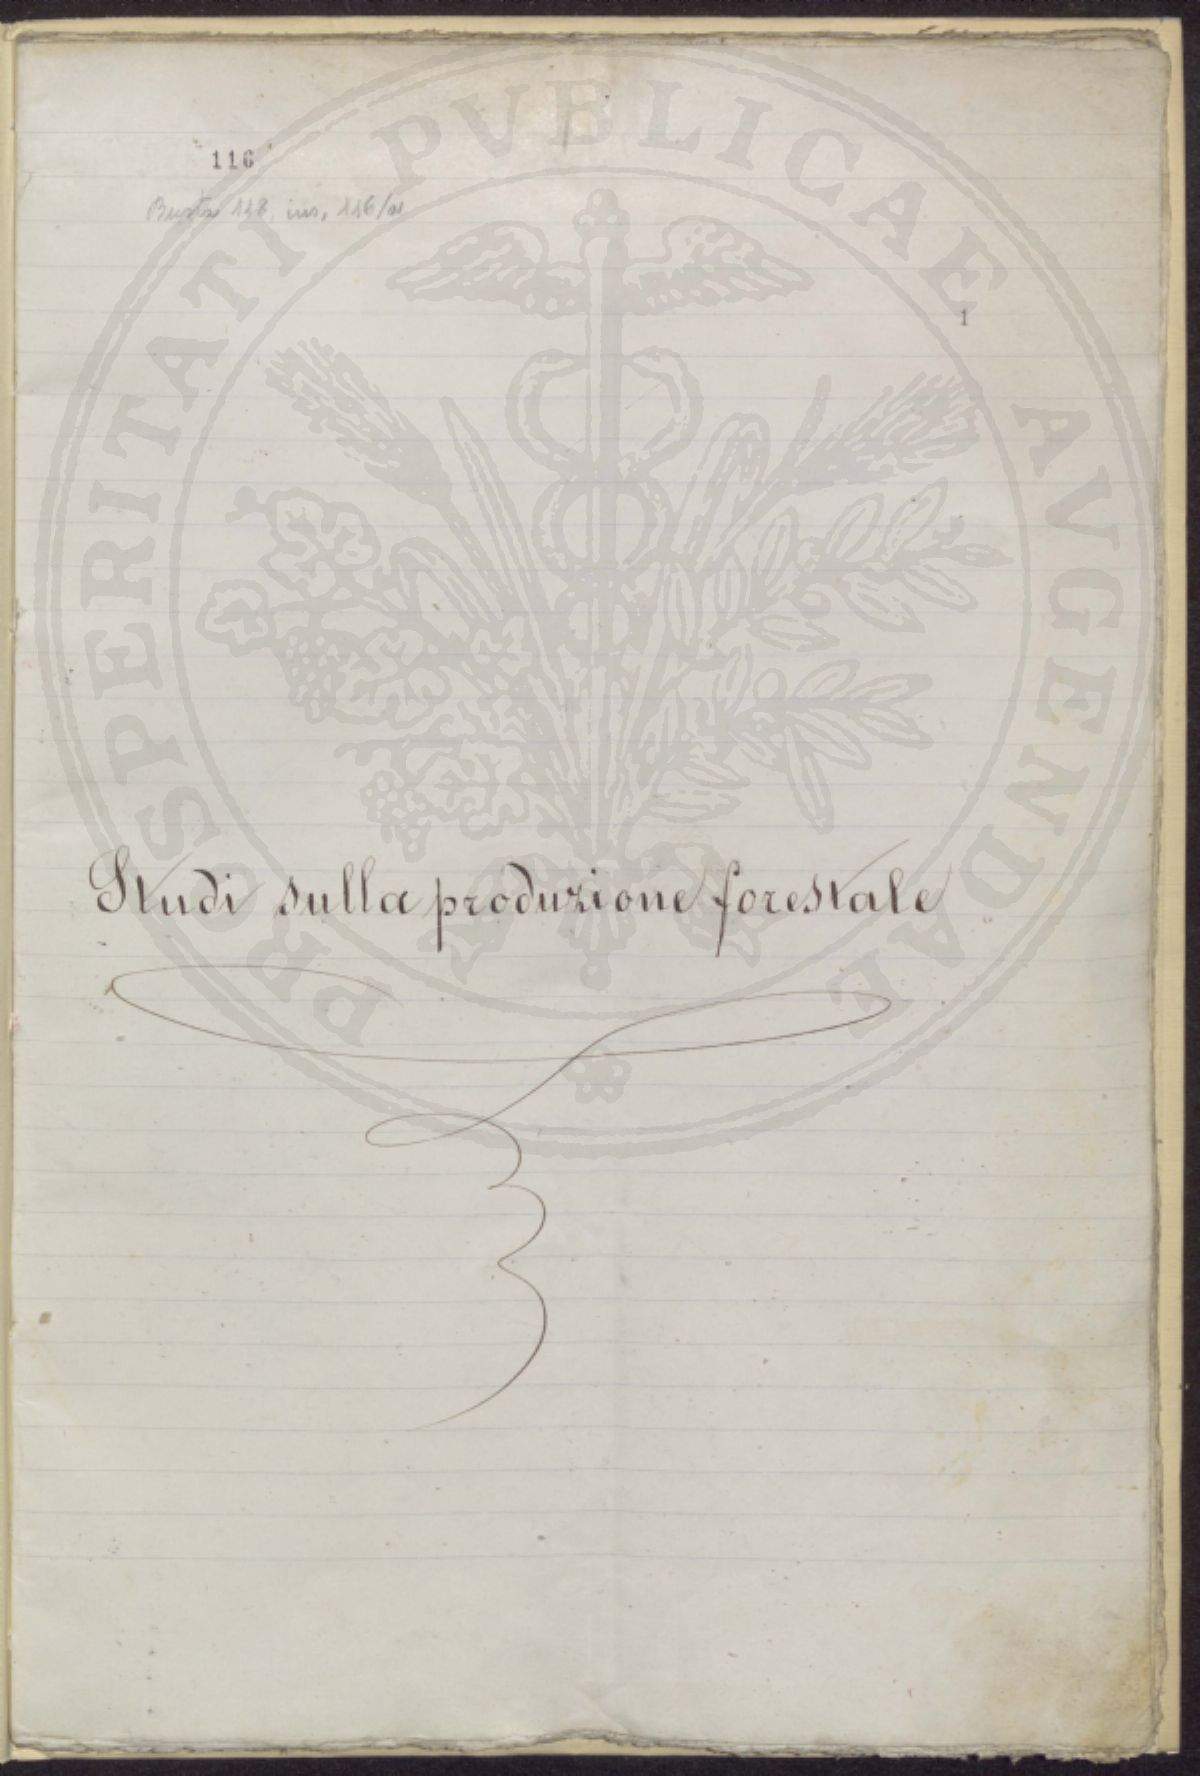 116
Busta 118, ins. 116/a
1
PROSPERITATI PVBLICAE AVGENDAE
Studi sulla produzione forestale